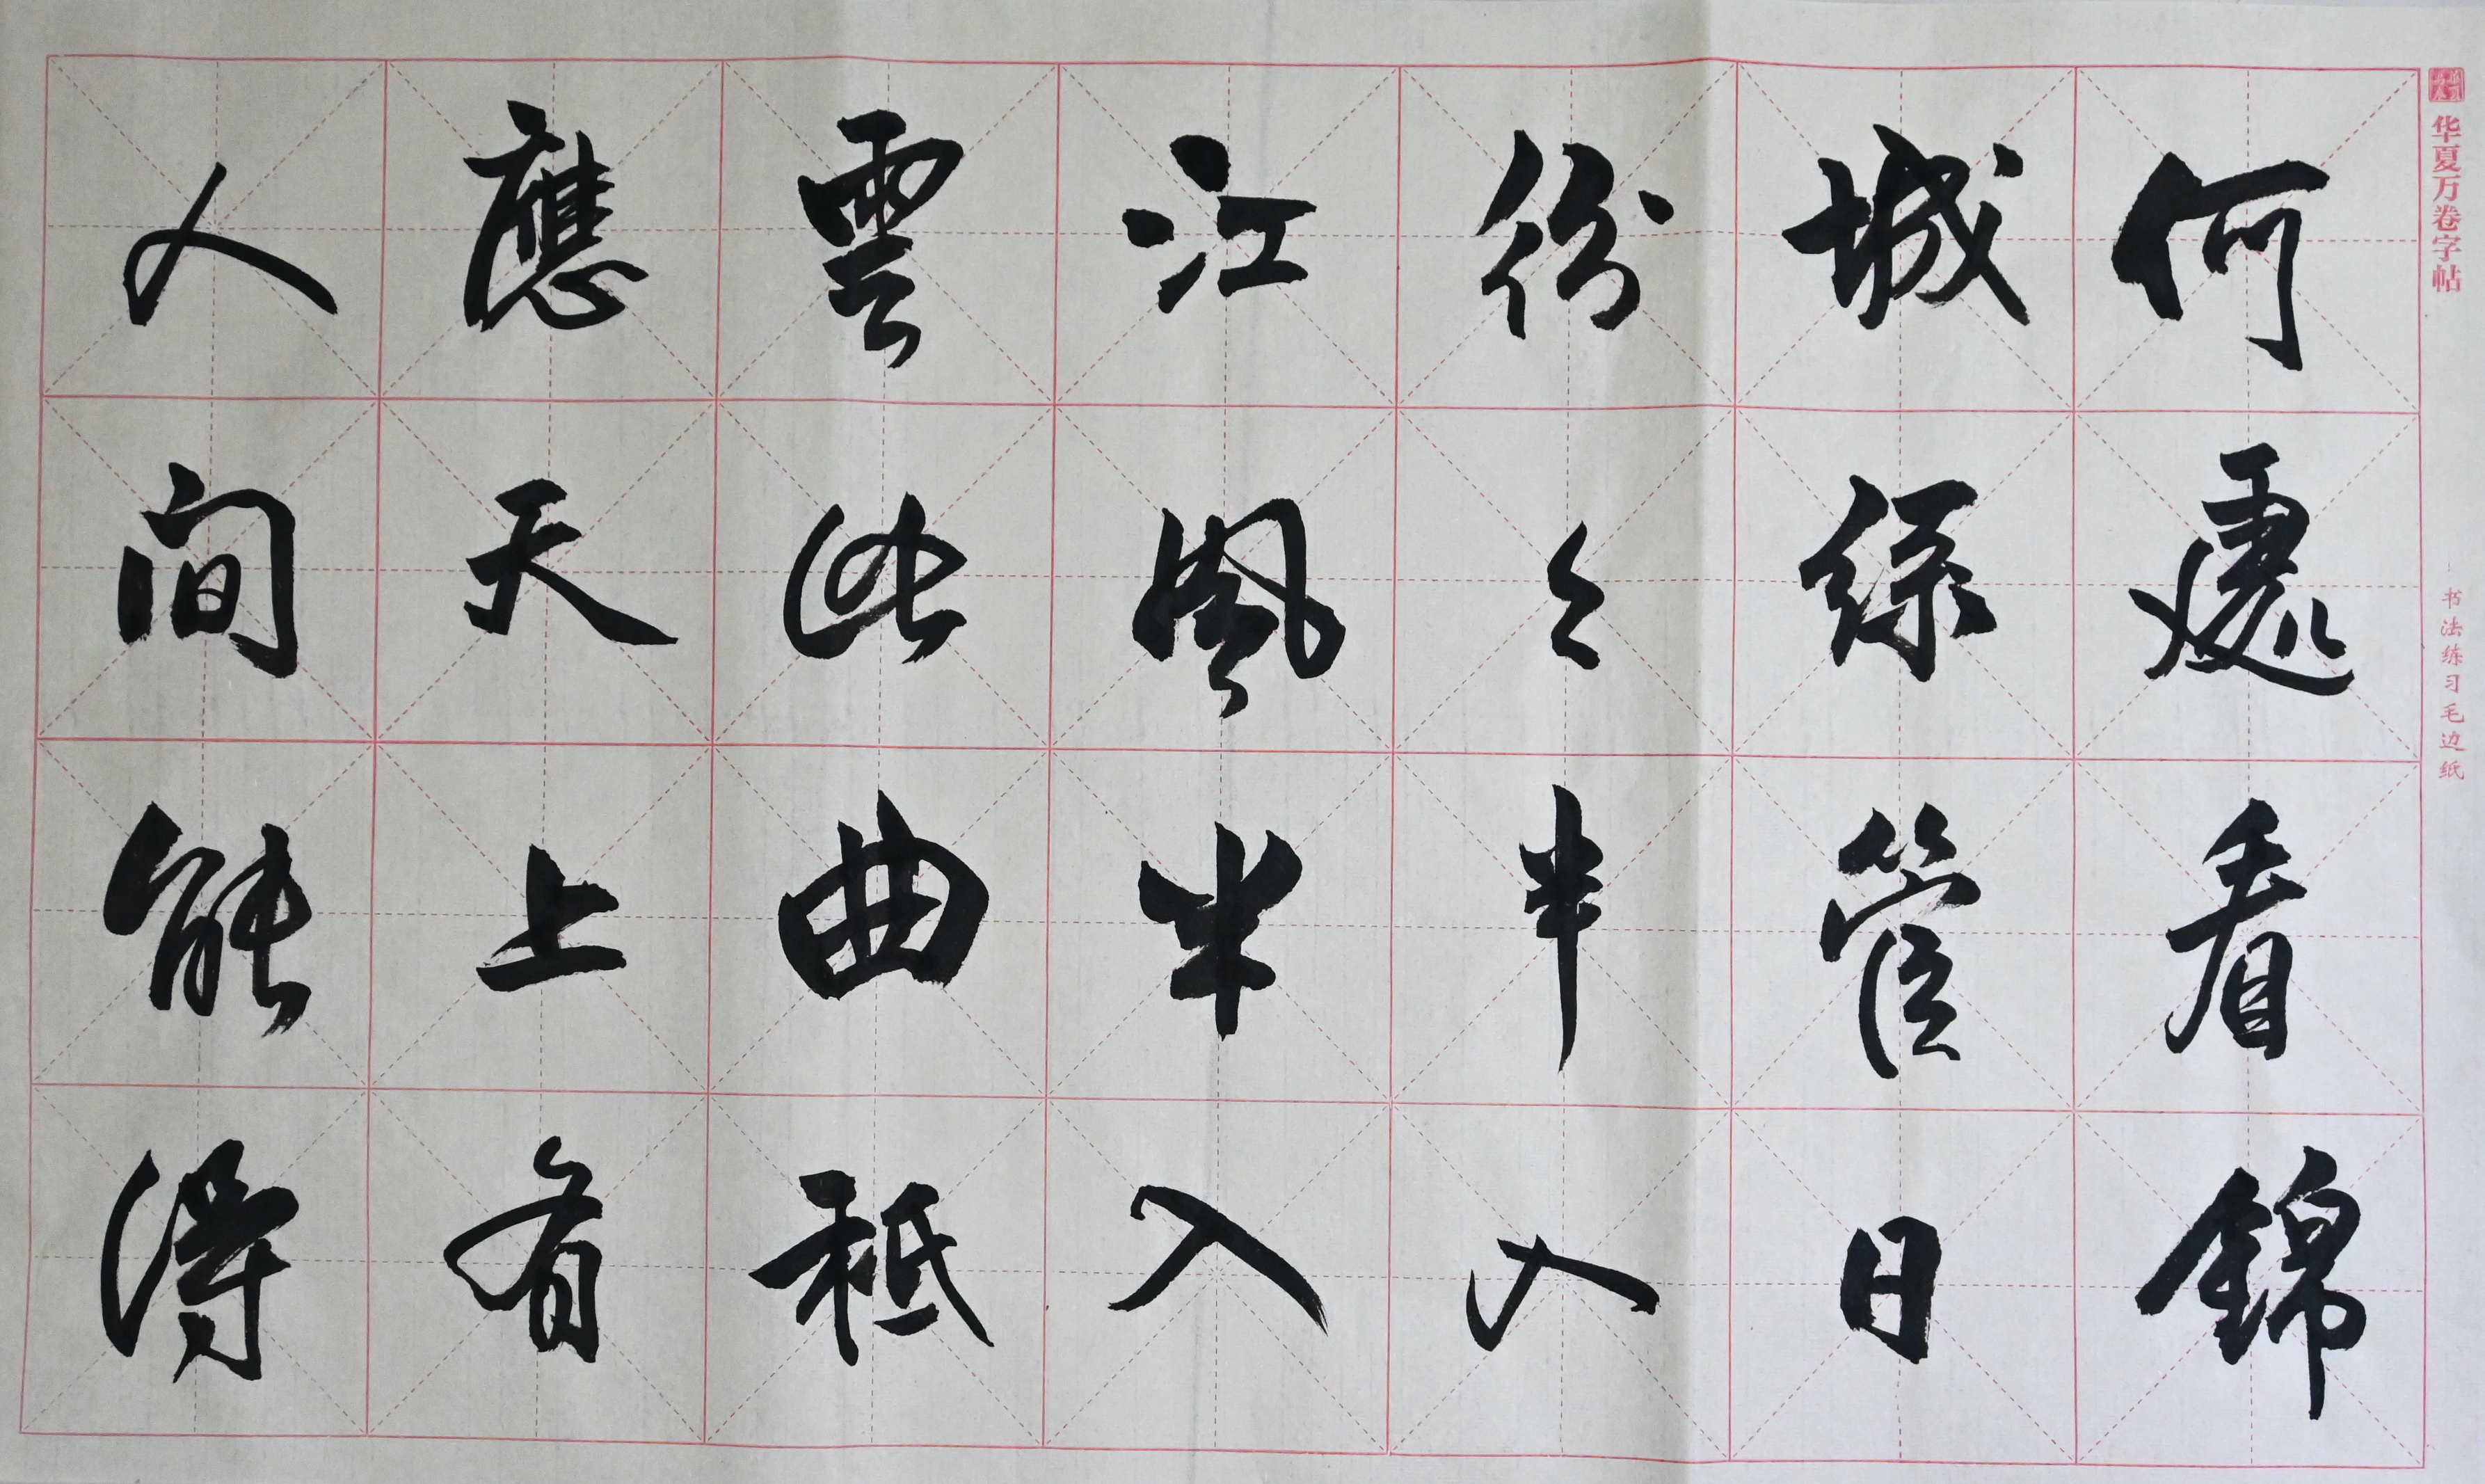 华夏万卷字帖
书法练习毛边纸
何處看錦
城絲管日
紛々半入
江風半入
雲此曲秖
應天上有
人間能得